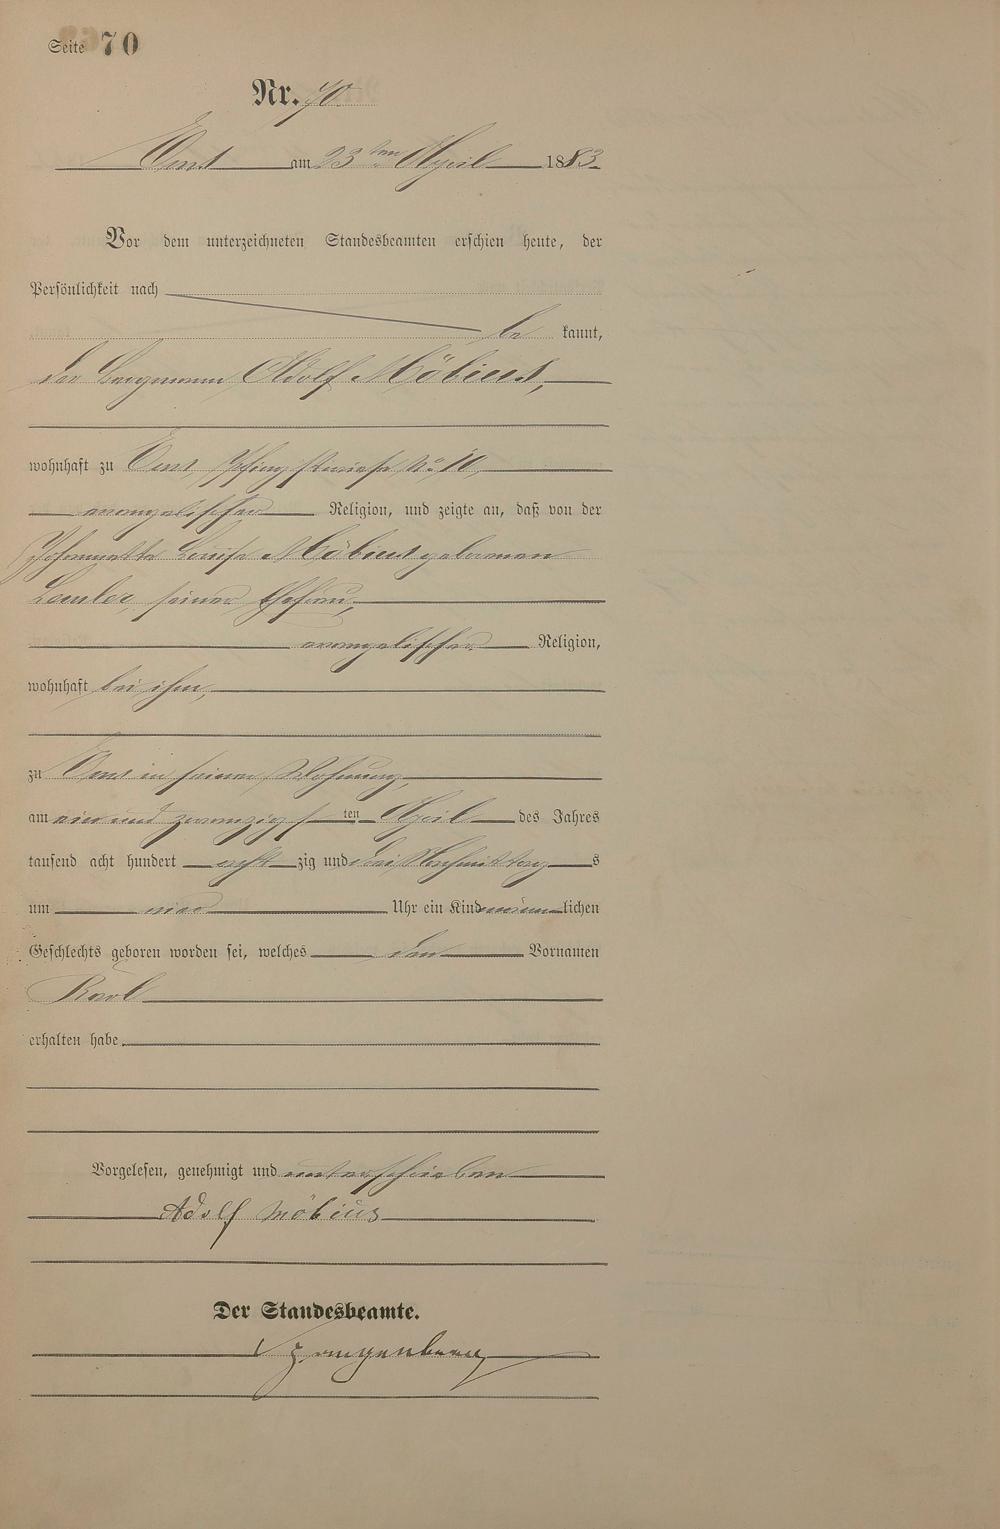 Seite 70
Nr. 70.
Ems am 23ten April 1883.
Vor dem unterzeichneten Standesbeamten erschien heute, der
Persönlichkeit nach
be kannt,
der Bergmann Adolf Möbius,
wohnhaft zu Ems, Pfingstwiese No 10,
evangelischer Religion, und zeigte an, daß von der
Johannette Louise Möbius geborenen
Lemler, seiner Ehefrau,
evangelischer Religion,
wohnhaft bei ihm,
zu Ems in seiner Wohnung,
am ein und zwanzigsten April des Jahres
tausend acht hundert acht zig und drei Nachmittags
um vier Uhr ein Kind männlichen
Geschlechts geboren worden sei, welches den Vornamen
Karl
erhalten habe
Vorgelesen, genehmigt und unterschrieben
Adolf Möbius
Der Standesbeamte.